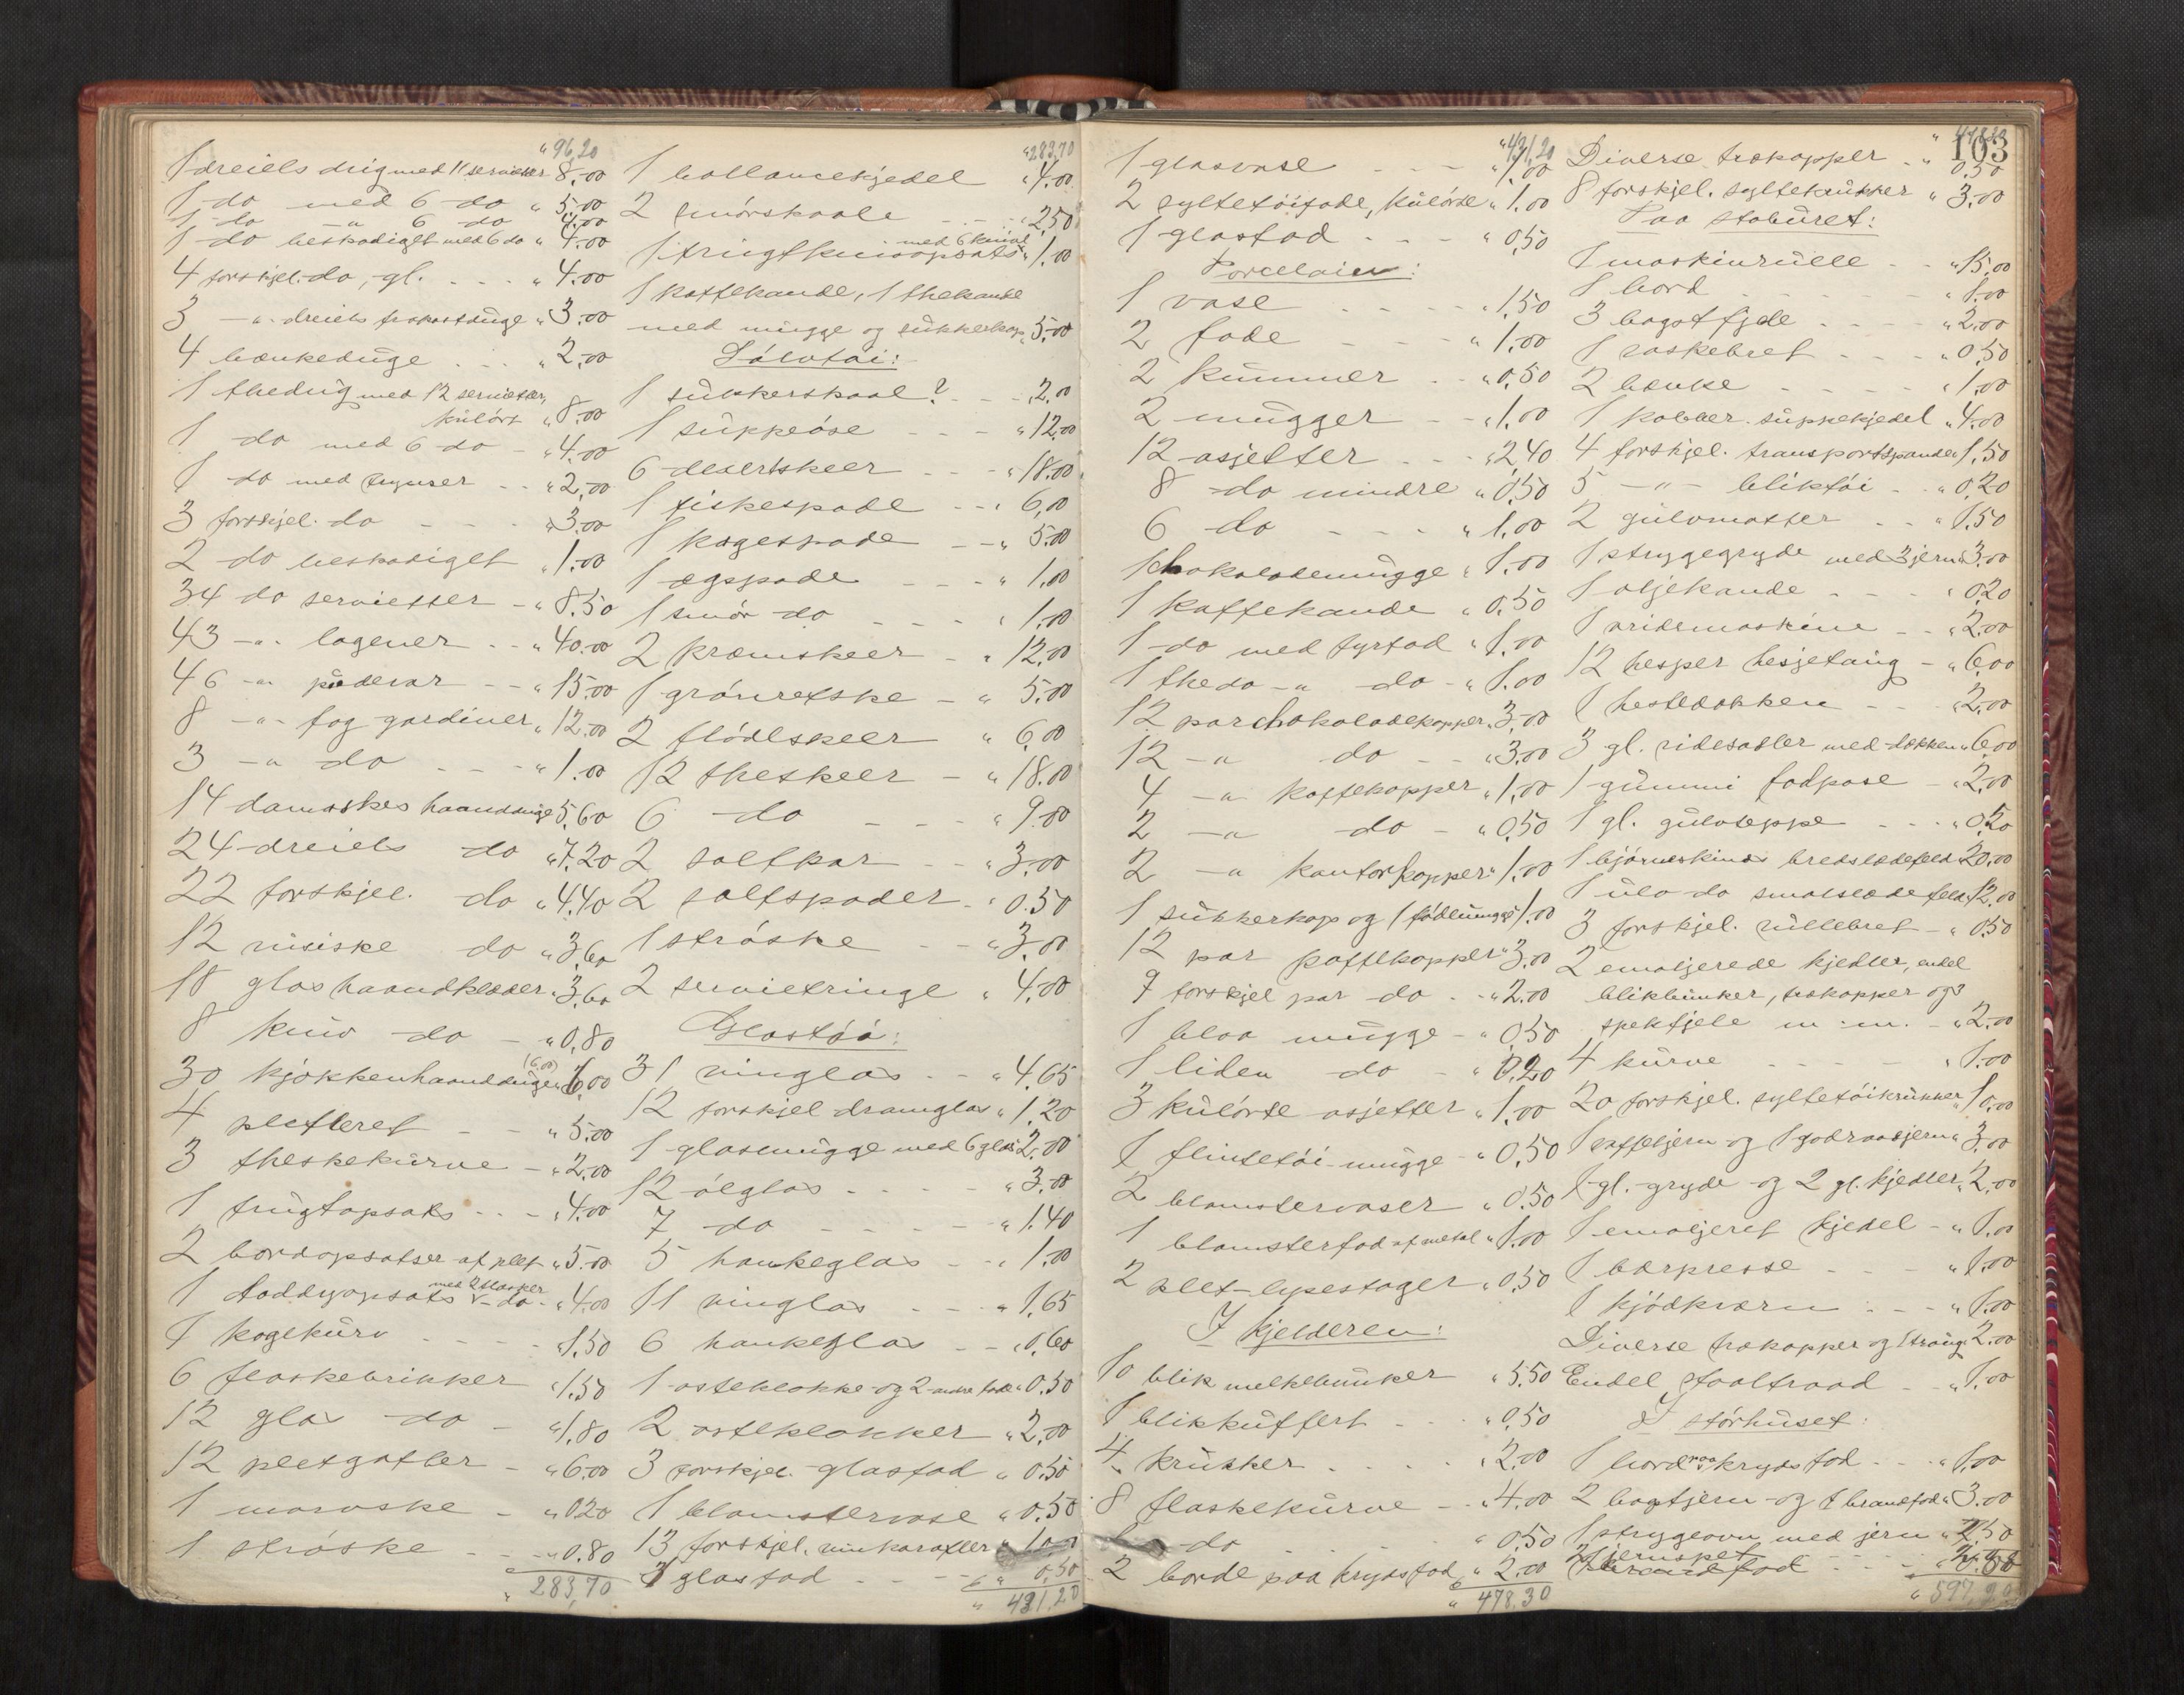 " 96,20
1 dreiels dug med 11 servietter 8.00
1 do med 6 do " 5.00
1 do " 6 do 4.00
1 do beskadiget med 6 do " 4.00
4 forskjel. do, gl. " 4.00
3 " dreiels frokostduge " 3.00
4 bænkeduge " 2.00
1 thedug med 12 servietter,
kulört " 8.00
1 do med 6 do " 4.00
1 do med frynser " 2.00
3 forskjel. do " 3.00
2 do beskadiget " 1.00
34 do servietter " 8.50
43 " lagener " 40.00
46 " pudevar " 15.00
8 " fag gardiner " 12.00
3 " do " 1.00
14 damaskes haandduge 5.60
24 dreiels do " 7.20
22 forskjel. do " 4.40
12 russiske do " 3.60
18 glas haandklæder " 3.60
8 kniv do " 0.80
30 kjøkkenhaandduge " 6.00
4 pletteret " 5.00
3 theskekurve " 2.00
1 frugtopsats " 4.00
2 bordopsatser af plet " 5.00
1 toddyopsats med 2 flasker " do " 4.00
1 kagekurv " 1.50
6 flaskebrikker " 1.50
12 glas do " 1.80
12 pletgafler " 6.00
1 marvske " 0.20
1 ströske " 0.80
" 283,70
" 283,70
1 kjedel " 4.00
2 smörskaale 2.50
1 frugtknivopsats med 6 knive " 1.00
1 kaffekande, 1 thekande
med mugge og sukkerkop " 5.00
Sölvtöi:
1 sukkerskaal? " 2.00
1 suppeöse " 12.00
6 desertskeer " 18.00
1 fiskespade " 6.00
1 kagespade " 5.00
1 ægspade " 1.00
1 smör do " 1.00
2 kræmskeer " 12.00
1 grönretske " 5.00
2 flödeskeer " 6.00
12 theskeer " 18.00
6 do " 9.00
2 saltkar " 3.00
2 saltspader " 0.50
1 ströske " 3.00
2 servietringe " 4.00
Glastöi:
31 vinglas " 4.65
12 forskjel dramglas " 1.20
1 glasmugge med 6 glas 2.00
12 ölglas " 3.00
7 do " 1.40
5 hankeglas " 1.00
11 vinglas " 1.65
6 hankeglas " 0.60
1 osteklokke og 2 andre fade " 0.50
2 osteklokker " 2.00
3 forskjel. glasfad " 0.50
1 blomstervase " 0.50
13 forskjel. vinkarafler " 1.00
glasfad 0,50
" 421,20
" 421,20
1 glasvase " 1.00
2 syltetöifade, kulörte " 1.00
1 glasfad " 0.50
Porcelain:
1 vase " 1.50
2 fade " 1.00
2 kummer " 0.50
2 mugger " 1.00
12 asjetter " 2.40
8 do mindre " 0.50
6 do " 1.00
1 chokolademugge " 1.00
1 kaffekande " 0.50
1 do med fyrfad " 1.00
1 thedo " do " 1.00
12 par chokoladekopper " 3.00
12 " do " 3.00
4 " kaffekopper " 1.00
2 " do " 0.50
2 " kantorkopper " 1.00
1 sukkerkop og 1 flödemugge " 1.00
12 par kaffekopper " 3.00
7 forskjel par do " 2.00
1 blaa mugge " 0.50
1 liden do " 0.20
3 kulörte asjetter " 1.00
1 flintetöi-mugge " 0.50
2 blomstervaser " 0.50
1 blomsterfad af metal " 1.00
2 plet-lysestager " 0.50
I kjelderen:
10 blik melkebunker " 5.50
1 blikkuffert " 0.50
4 krukker " 2.00
8 flaskekurve " 4.00
do " 0.50
2 borde paa krydsfod " 2.00
" 478.30
103
Diverse trækopper " 0.50
8 forskjel. syltekrukker " 3.00
Paa staburet:
1 maskinrulle " 15.00
1 bord " 1.00
3 bagstfjele " 2.00
1 vaskebret " 0.50
2 bænke " 1.00
1 kobber suppekjedel " 4.00
4 forskjel. transportspande " 1.50
5 " bliktöi " 0.20
2 gulvmatter " 1.50
1 strygegryde med 3 jern " 3.00
1 oljekande " 0.20
1 vridemaskine " 2.00
12 hesper hesjetaug " 6.00
1 hestedækken " 2.00
3 gl. ridesadler med dækken " 6.00
1 gummi fodpose " 2.00
1 gl. gulvteppe " 0.50
1 björneskinds bredslædefeld 20.00
1 ulv do smalslædefeld 12.00
3 forskjel. rullebret " 0.50
2 emaljerede kjedler, endel
blikbunker, trækopper og 3
spekfjele m. m. " 2.00
4 kurve " 1.00
20 forskjel. syltetöikrukker " 10.00
1 vaffeljern og 1 godraadjern " 3.00
1 gl. gryde og 2 gl. kjedler " 2.00
1 emaljeret kjedel " 1.00
1 bærpresse " 1.00
1 kjödkværn " 1.00
Diverse trækopper og 1 traug " 2.00
Endel staaltraad " 1.00
I störhuset:
1 bord paa krydsfod " 1.00
2 bagtjern og 1 brandfod " 3.00
1 strygeovn med jern " 2.50
1 jernspet
" 597,20